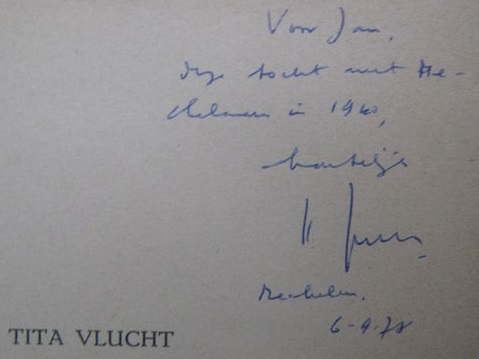 Voor Jan,
deze tocht met Me-
chelaars in 1940,
hartelijk
Mechelen.
6-9-78
TITA VLUCHT